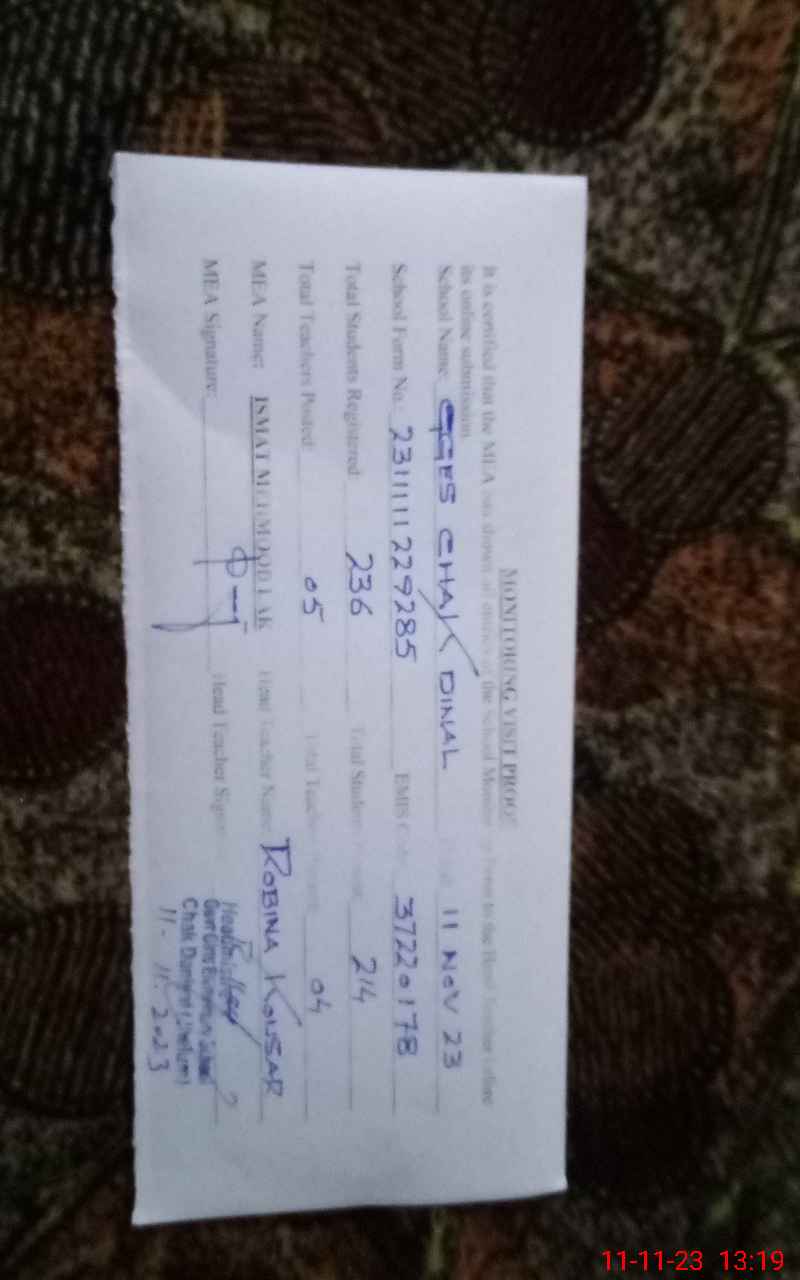 MONITORING VISIT PROOF
It is certified that the MEA has shown all entries of the School Monitoring Form to the Head Teacher before
its online submission
School Name: GGES CHAK DINAL 11 NOV 23
School Form No.: 231111229285 EMIS Code: 37220178
Total Students Registered: 236 Total Students 214
Total Teachers Posted: 05 Total Teachers 04
MEA Name: ISMAT MEHMOOD Head Teacher Name: ROBINA KOUSAR
MEA Signature: Head Teacher Signature
Headmistress
Govt Girls Elementary School
Chak (Jhelum)
11-11-2023
11-11-23 13:19